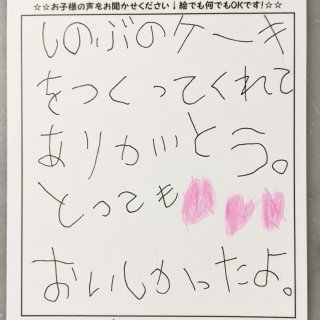 ☆☆お子様の声をお聞かせください↓絵でも何でもOKです!☆☆
しのぶのケーキ
をつくってくれて
ありがとう。
とっても
おいしかったよ。